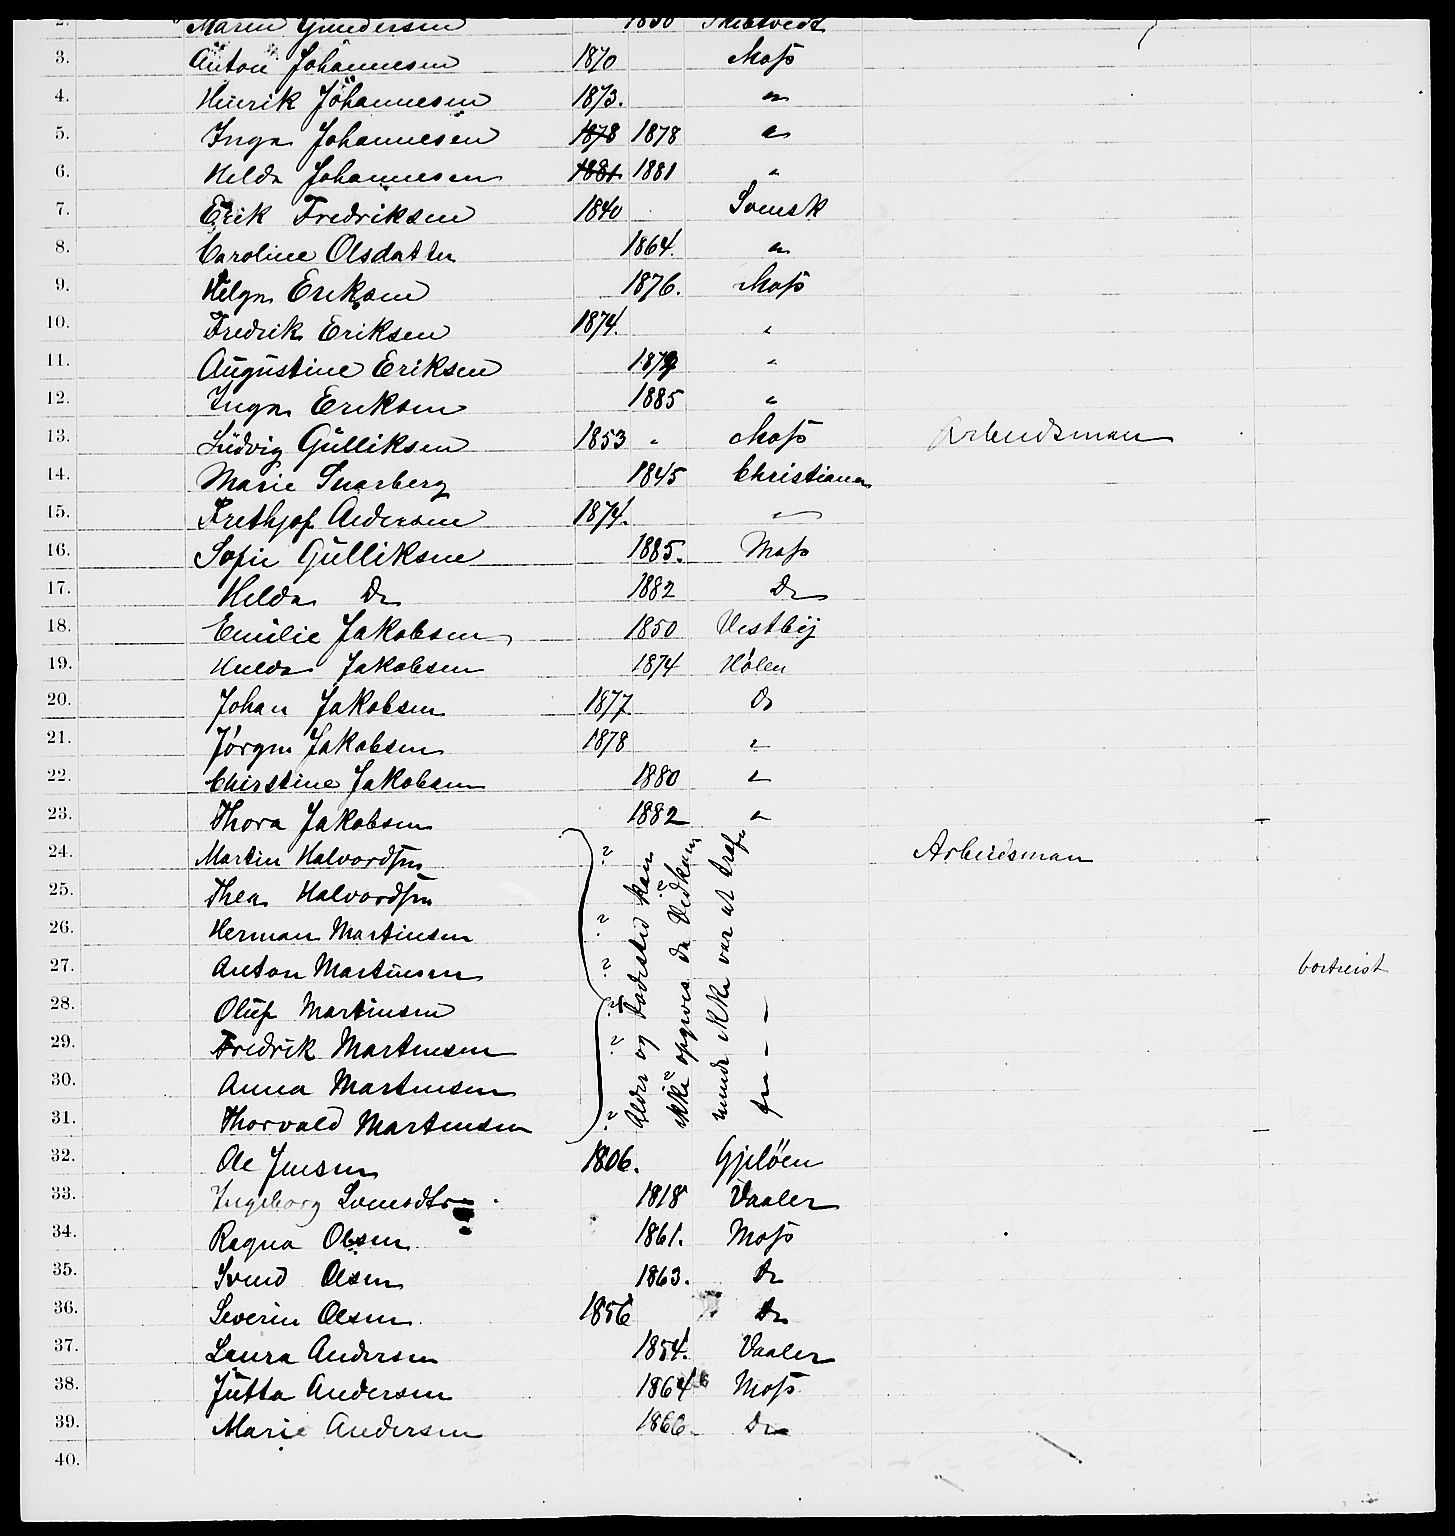 2. Maren Gundersen 1850 Skibtvedt
3. Anton Johannesen 1870 Moss
4. Henrik Johannesen 1873. "
5. Inga Johannesen 1878 1878 "
6. Hilda Johannesen 1881 1881 "
7. Erik Fredriksen 1840 Svensk
8. Caroline Olsdatter 1864. "
9. Helga Eriksen 1876. Moss
10. Fredrik Eriksen 1874. "
11. Augustine Eriksen 1879 "
12. Inga Eriksen 1885 "
13. Ludvig Gulliksen 1853 " Moss Arbeidsman
14. Marie Snarberg 1845 Christiania
15. Frethjof Andersen 1874. "
16. Sofie Gulliksen 1885. Moss
17. Hilda Do 1882 Do
18. Emilie Jakobsen 1850 Vestby
19. Hulda Jakobsen 1874 Hølen
20. Johan Jakobsen 1877 Do
21. Jørgen Jakobsen 1878 "
22. Chirstine Jakobsen 1880 "
23. Thora Jakobsen 1882 "
24. Martin Halvordsen ? Arbeidsman
25. Thea Halvordsen ?
26. Herman Martinsen ?
27. Anton Martinsen ? bortreist
28. Oluf Martinsen ?
29. Fredrik Martinsen ?
30. Anna Martinsen ?
31. Thorvald Martinsen ?
Alder og Fødested kan
ikke opgives da Vedkom
mende ikke var at træf
fe — — —
32. Ole Jensen 1806. Gjeløen
33. Ingeborg Svensdtr 1818 Vaaler
34. Ragna Olsen 1861. Moss
35. Svend Olsen 1863. Do
36. Severin Olsen 1856 Do
37. Laura Andersen 1854. Vaaler
38. Jutta Andersen 1864 Moss
39. Marie Andersen 1866. Do
40.